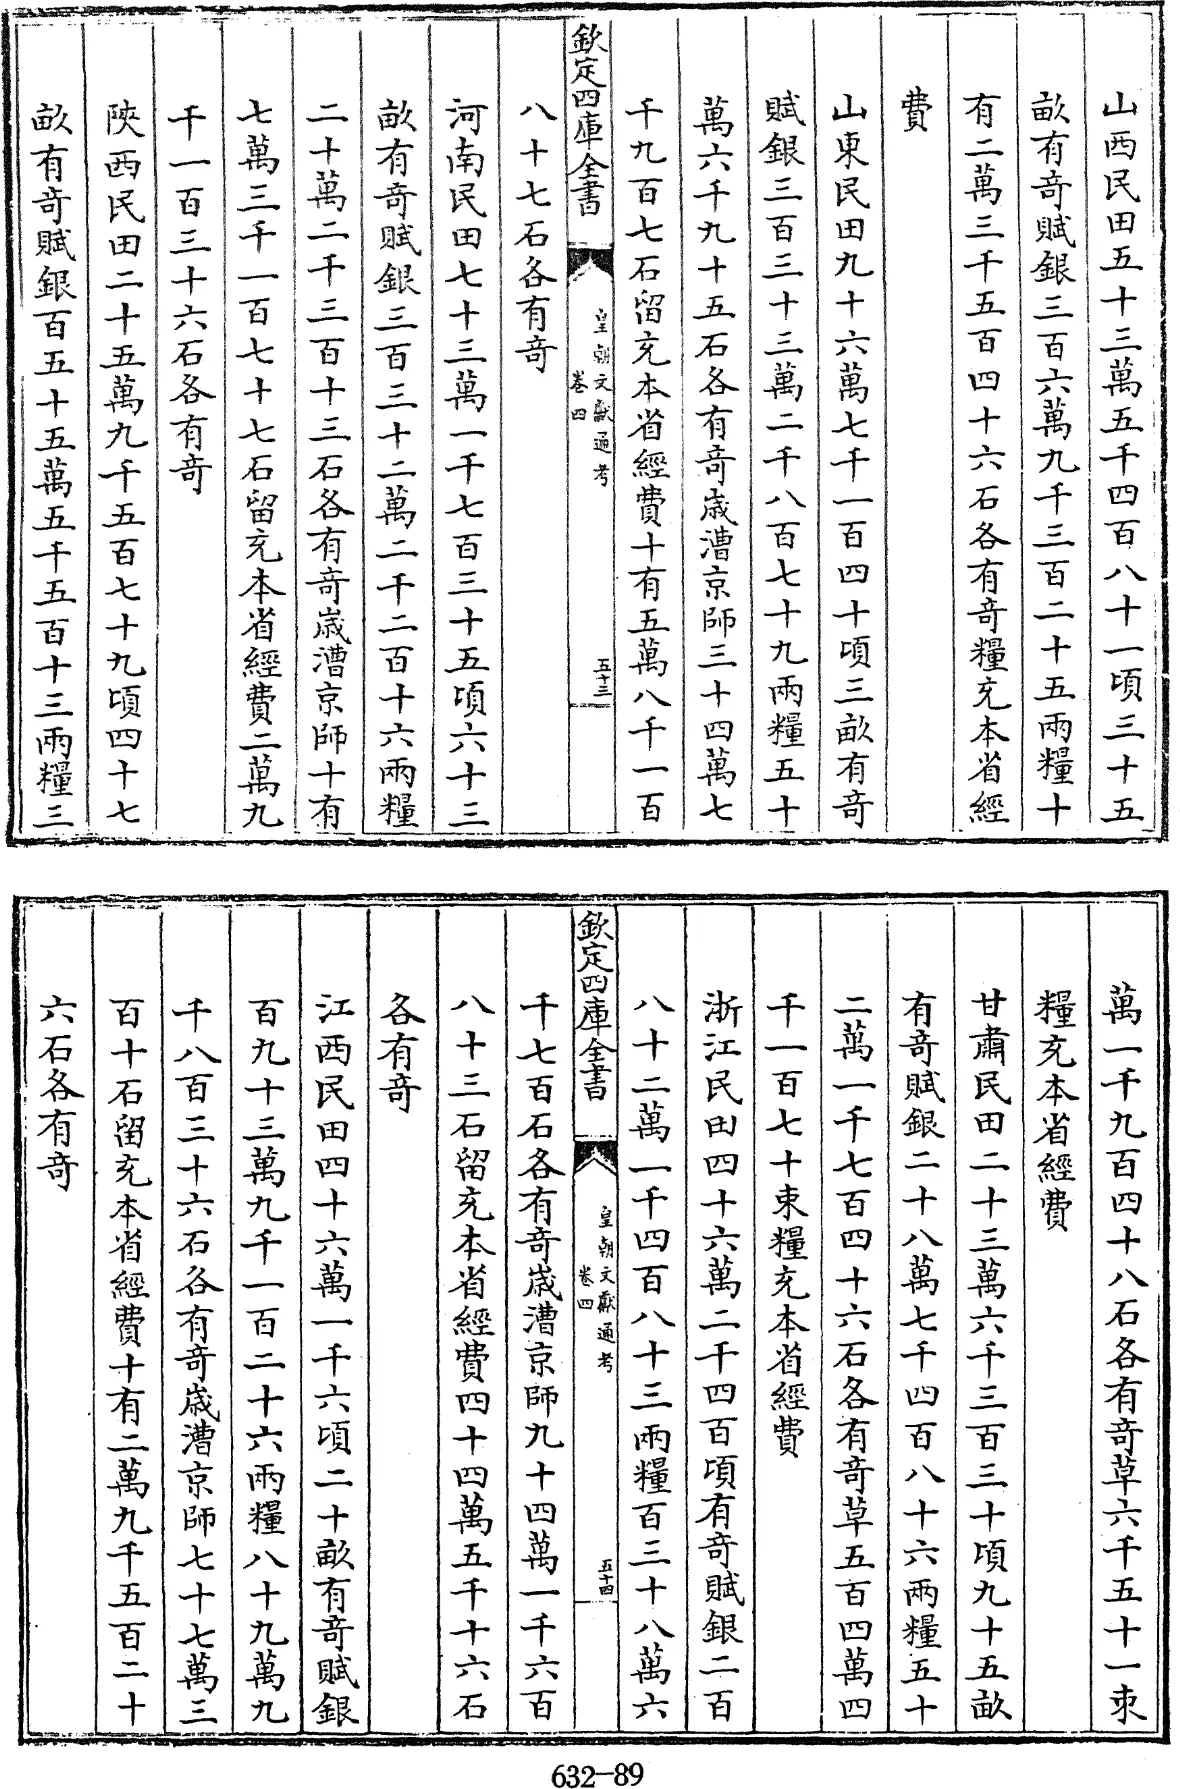 山西民田五十三萬五千四百八十一頃三十五
畝有奇賦銀三百六萬九千三百二十五兩糧十
有二萬三千五百四十六石各有奇糧充本省經
費
山東民田九十六萬七千一百四十頃三畝有奇
賦銀三百三十三萬二千八百七十九兩糧五十
萬六千九十五石各有奇歳漕京師三十四萬七
千九百七石留充本省經費十有五萬八千一百
八十七石各有奇
欽定四庫全書
皇朝文獻通考
卷四
五十三
河南民田七十三萬一千七百三十五頃六十三
畝有奇賦銀三百三十二萬二千二百十六兩糧
二十萬二千三百十三石各有奇歳漕京師十有
七萬三千一百七十七石留充本省經費二萬九
千一百三十六石各有奇
陜西民田二十五萬九千五百七十九頃四十七
畝有奇賦銀百五十五萬五千五百十三兩糧三
萬一千九百四十八石各有奇草六千五十一束
糧充本省經費
甘肅民田二十三萬六千三百三十頃九十五畝
有奇賦銀二十八萬七千四百八十六兩糧五十
二萬一千七百四十六石各有奇草五百四萬四
千一百七十束糧充本省經費
浙江民田四十六萬二千四百頃有奇賦銀二百
八十二萬一千四百八十三兩糧百三十八萬六
欽定四庫全書
皇朝文獻通考
卷四
五十四
千七百石各有奇歳漕京師九十四萬一千六百
八十三石留充本省經費四十四萬五千十六石
各有奇
江西民田四十六萬一千六頃二十畝有奇賦銀
百九十三萬九千一百二十六兩糧八十九萬九
千八百三十六石各有奇歳漕京師七十七萬三
百十石留充本省經費十有二萬九千五百二十
六石各有奇
632-89